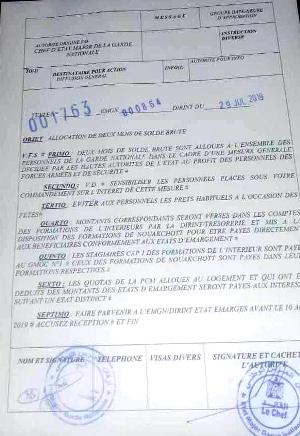 MESSAGE
GROUPE DATE-HEURE
D'APPROBATION
INSTRUCTION
DIVERSE
AUTORITE ORIGINE F.O.
CHEF D'ETAT MAJOR DE LA GARDE
NATIONALE
AUTORITE POUR INFO
DESTINATAIRE POUR ACTION
DIFFUSION GENERAL
INFO(I)
TEXTE
001763
EMGN
000864
DIRINT DU
29 JUIL 2019
OBJET ALLOCATION DE DEUX MOIS DE SOLDE BRUTE
PRIMO DEUX MOIS DE SOLDE BRUTE SONT ALLOUES A L'ENSEMBLE DES
PERSONNELS DE LA GARDE NATIONALE DANS LE CADRE D'UNE MESURE GENERALE
DECIDEE PAR LES HAUTES AUTORITES DE L'ETAT AU PROFIT DES PERSONNELS DES
FORCES ARMEES ET DE SECURITE
SECUNDO: V.D SENSIBILISER LES PERSONNELS PLACES SOUS VOTRE
COMMANDEMENT SUR L'INTERET DE CETTE MESURE
TERTIO EVITER AUX PERSONNELS LES PRETS HABITUELS A L'OCCASION DES
FETES
QUARTO MONTANTS CORRESPONDANTS SERONT VERSES DANS LES COMPTES
DES FORMATIONS DE L'INTERIEURS PAR LA DIRINT-TRESORERIE ET MIS A LA
DISPOSITION DES FORMATIONS DE NOUAKCHOTT POUR ETRE PAYES DIRECTEMENT
AUX BENEFICIAIRES CONFORMEMENT AUX ETATS D'EMARGEMENT
QUINTO LES STAGIAIRES CAP 1 DES FORMATIONS DE L'INTERIEUR SONT PAYES
AU GMOC N°1 CEUX DES FORMATIONS DE NOUAKCHOTT SONT PAYES DANS LEURS
FORMATIONS RESPECTIVES
SEXTO : LES QUOTAS DE LA PCM ALLOUES AU LOGEMENT ET QUI ONT ETE
DEDUITS DES MONTANTS DES ETATS D'EMARGEMENTS SERONT PAYES AUX INTERESSES
SUIVANT UN ETAT DISTINCT
SEPTIMO FAIRE PARVENIR A L'EMGN/DIRINT ETATS EMARGES AVANT LE 10 AOUT
2019 ACCUSEZ RECEPTION ET FIN
NOM ET SIGNATURE TELEPHONE VISAS DIVERS SIGNATURE ET CACHET
L'AUTORITE
Le Chef